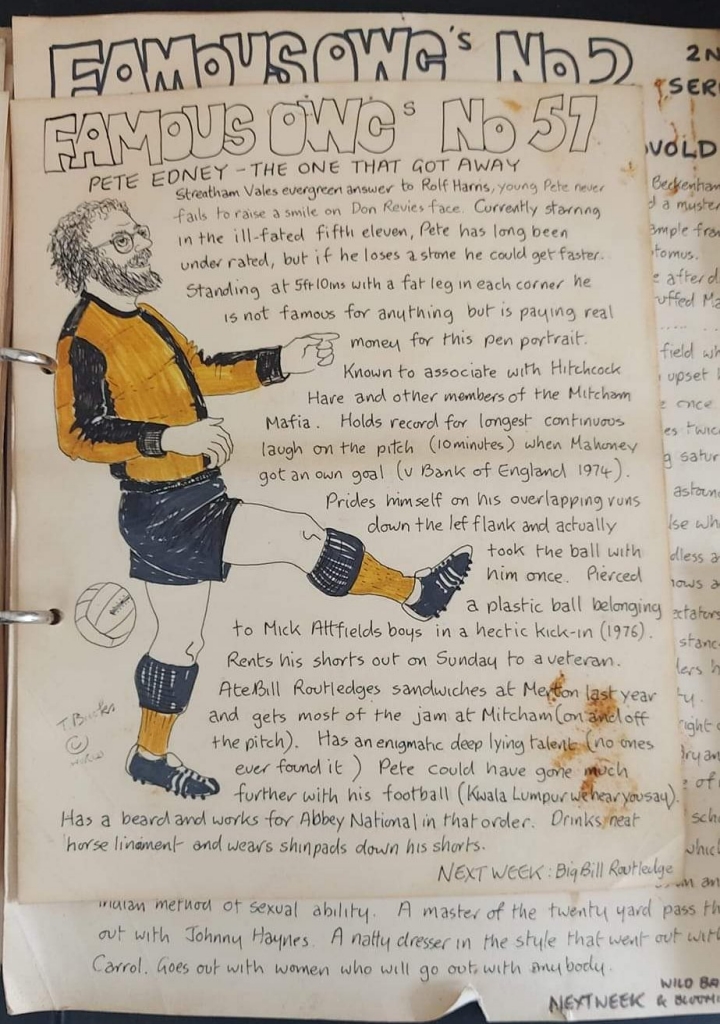 FAMOUS OWC's No 2
2N
SER
FAMOUS OWC's No 57
VOLD
PETE EDNEY - THE ONE THAT GOT AWAY
Streatham Vales evergreen answer to Rolf Harris, young Pete never
fails to raise a smile on Don Revies face. Currently starring
in the ill-fated fifth eleven, Pete has long been
under rated, but if he loses a stone he could get faster.
Standing at 5ft 10ins with a fat leg in each corner he
is not famous for anything but is paying real
money for this pen portrait.
Known to associate with Hitchcock
Hare and other members of the Mitcham
Mafia. Holds record for longest continuous
laugh on the pitch (10 minutes) when Mahoney
got an own goal (v Bank of England 1974).
Prides himself on his overlapping runs
down the left flank and actually
took the ball with
him once. Pierced
a plastic ball belonging
to Mick Attfields boys in a hectic kick-in (1976).
Rents his shorts out on Sunday to a veteran.
Ate Bill Routledges sandwiches at Merton last year
and gets most of the jam at Mitcham (on and off
the pitch). Has an enigmatic deep lying talent (no ones
ever found it) Pete could have gone much
further with his football (Kwala Lumpur we hear you say).
Has a beard and works for Abbey National in that order. Drinks neat
horse linament and wears shinpads down his shorts.
NEXT WEEK: Big Bill Routledge
©
Beckenham
d a muster
ample fra
tomus.
e after d
uffed Ma
field wh
upset
once
es twic
g satur
astoun
lse wh
dless a
nows a
ectators
stanc
ders h
ty.
right
dryan
e of
scho
which
an an
indian method of sexual ability. A master of the twenty yard pass th
out with Johnny Haynes. A natty dresser in the style that went out with
Carrol. Goes out with women who will go out with anybody.
WILD BA
NEXT WEEK & BLOOMI